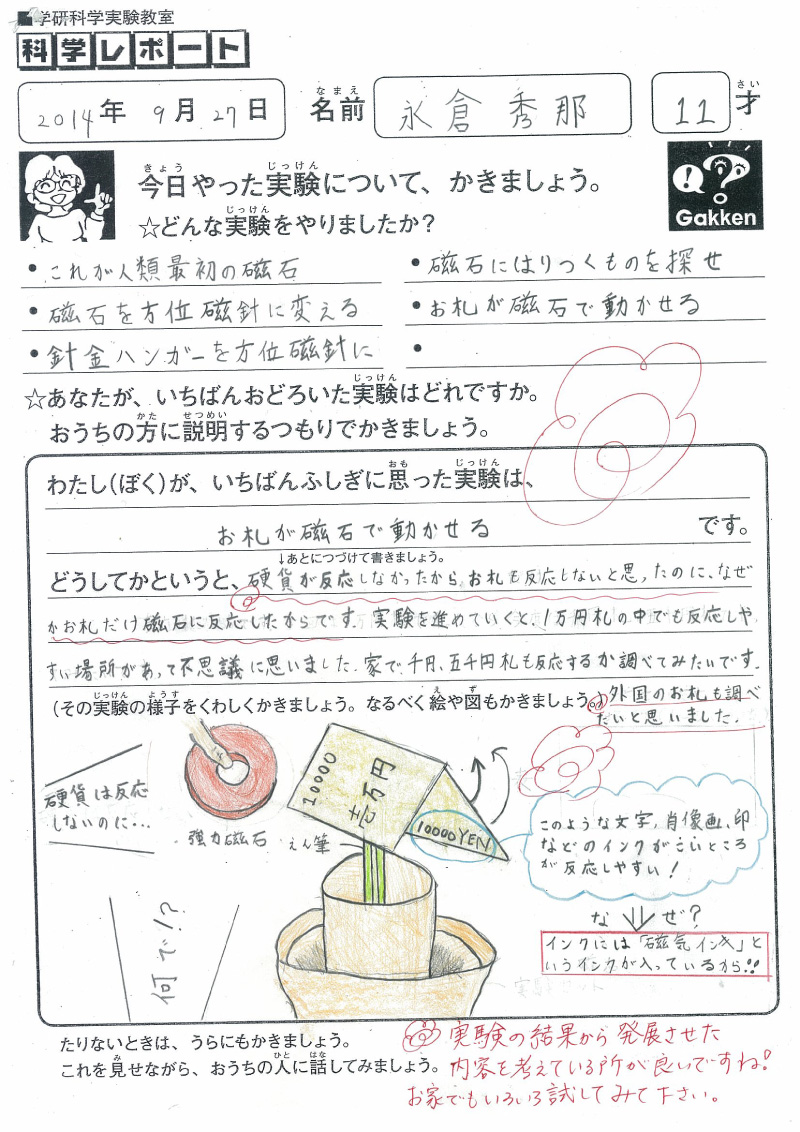 学研科学実験教室
科学レポート
2014年 9月 27日 名前 永倉 秀那 11才
なまえ さい
今日やった実験について、かきましょう。
きょう じっけん
☆どんな実験をやりましたか？
じっけん
Gakken
・これが人類最初の磁石
・磁石を方位磁針に変える
・針金ハンガーを方位磁針に
・磁石にはりつくものを探せ
・お札が磁石で動かせる
・
☆あなたが、いちばんおどろいた実験はどれですか。
じっけん
おうちの方に説明するつもりでかきましょう。
かた せつめい
わたし(ぼく)が、いちばんふしぎに思った実験は、
おも じっけん
お札が磁石で動かせる です。
↓あとにつづけて書きましょう。
どうしてかというと、硬貨が反応しなかったからお札も反応しないと思ったのに、なぜ
かお札だけ磁石に反応したからです。実験を進めていくと、1万円札の中でも反応しや
すい場所があって不思議に思いました。家で千円、五千円札も反応するか調べてみたいです。
(その実験の様子をくわしくかきましょう。なるべく絵や図もかきましょう。)
じっけん ようす え ず
外国のお札も調べ
たいと思いました。
硬貨は反応
しないのに・・・
強力磁石
えん筆
10000
壱万円
10000YEN
このような文字、肖像画、印
などのインクがこいところ
が反応しやすい！
なぜ？
インクには「磁気インキ」と
いうインクが入っているから!!
何で!?
たりないときは、うらにもかきましょう。
これを見せながら、おうちの人に話してみましょう。
み ひと はな
実験の結果から発展させた
内容を考えている所が良いですね！
お家でもいろいろ試してみて下さい。